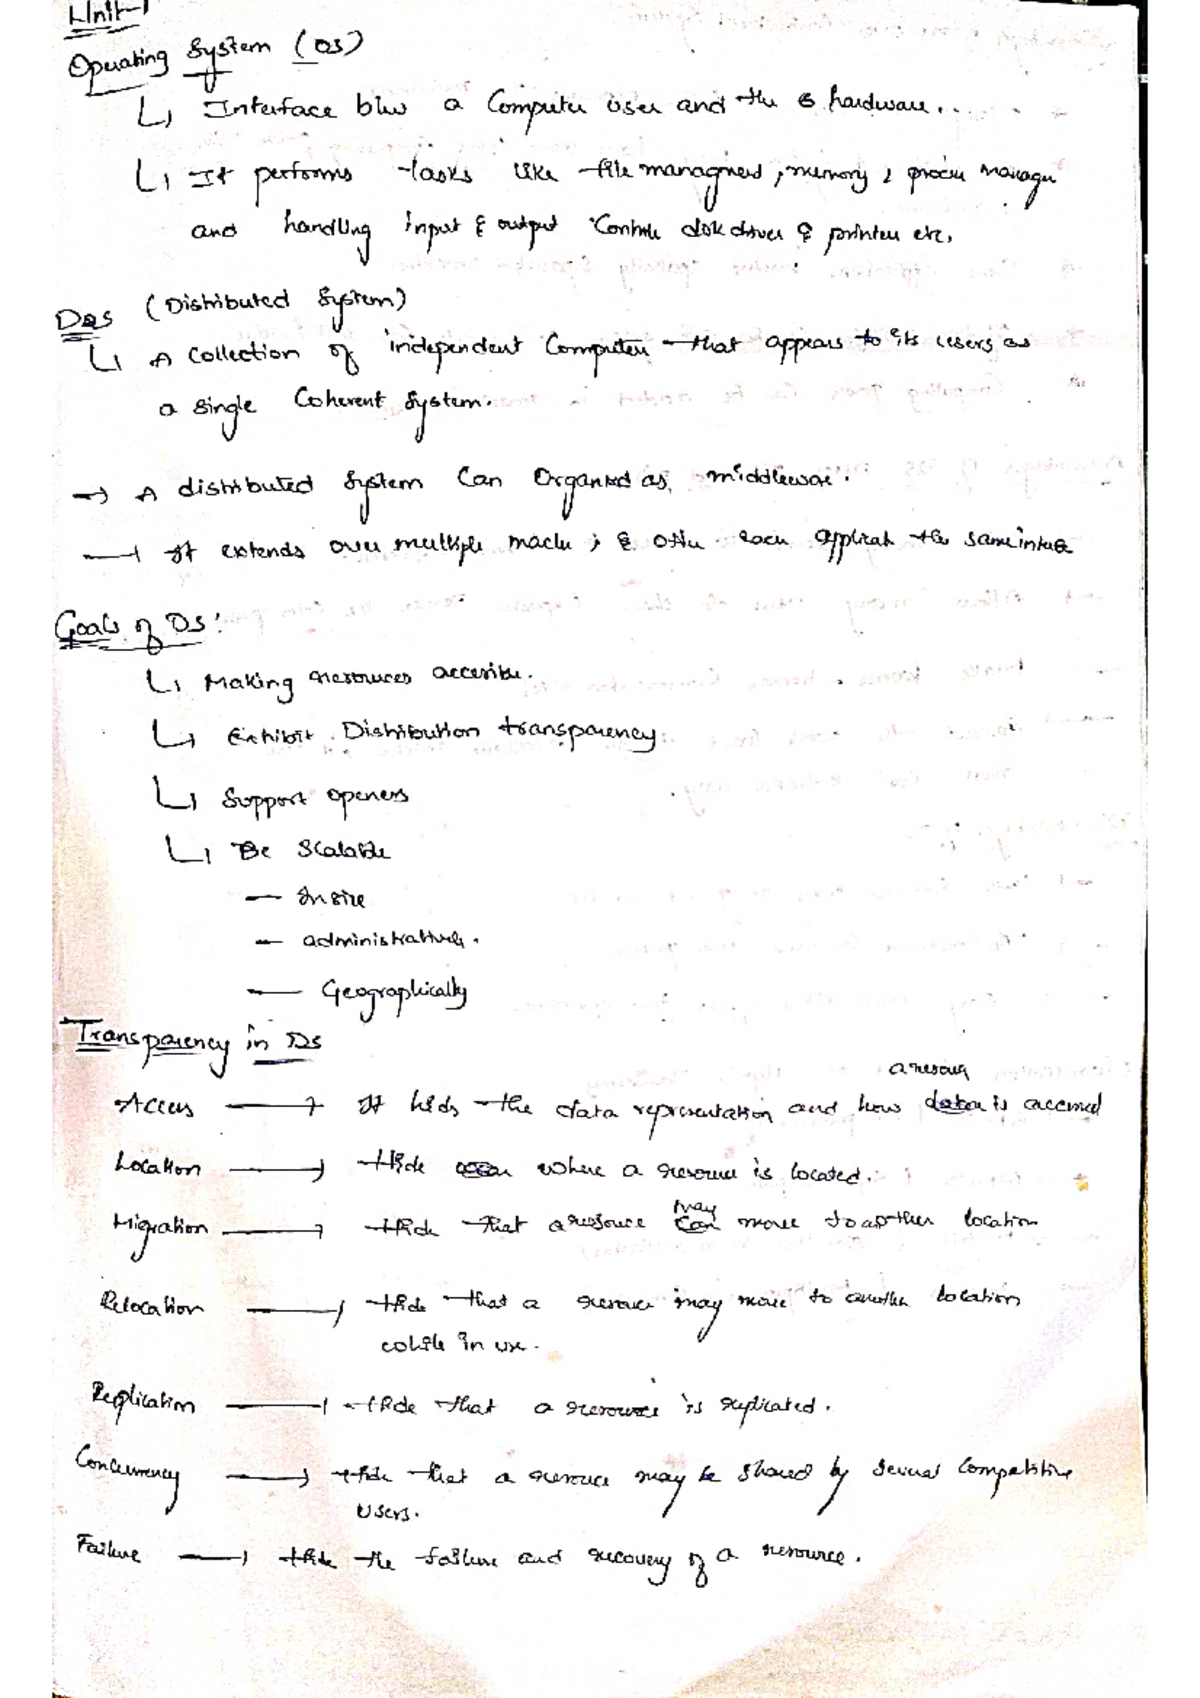 Unit-1
Operating System (OS)
↳ Interface b/w a Computer user and the hardware.
↳ It performs tasks like file managment, memory & process manage
and handling input & output Controle disk drives & printers etc.
DOS (Distributed System)
↳ A Collection of independent Computers that appears to its users as
a single Coherent System.
→ A distributed System Can Organized as middleware.
→ It extends over multiple machi ; & offer each applicat the same interfa
Goals of DS:
↳ Making resources accesible.
↳ Exhibit Distribution transparency
↳ Support openess
↳ Be Scalable
— In size
— administratively.
— Geographically
Transparency in DS
a resourc
Access → It hids the data representation and how data is accessed
Location → Hide where a resource is located.
may
Migration → Hide that a resource can move to another location
Relocation → Hide that a resource may move to another location
while in use.
Replication → Hide that a resource is replicated.
Concurrency → Hide that a resource may be shared by several Competitive
users.
Failure → Hide the failure and recovery of a resource.